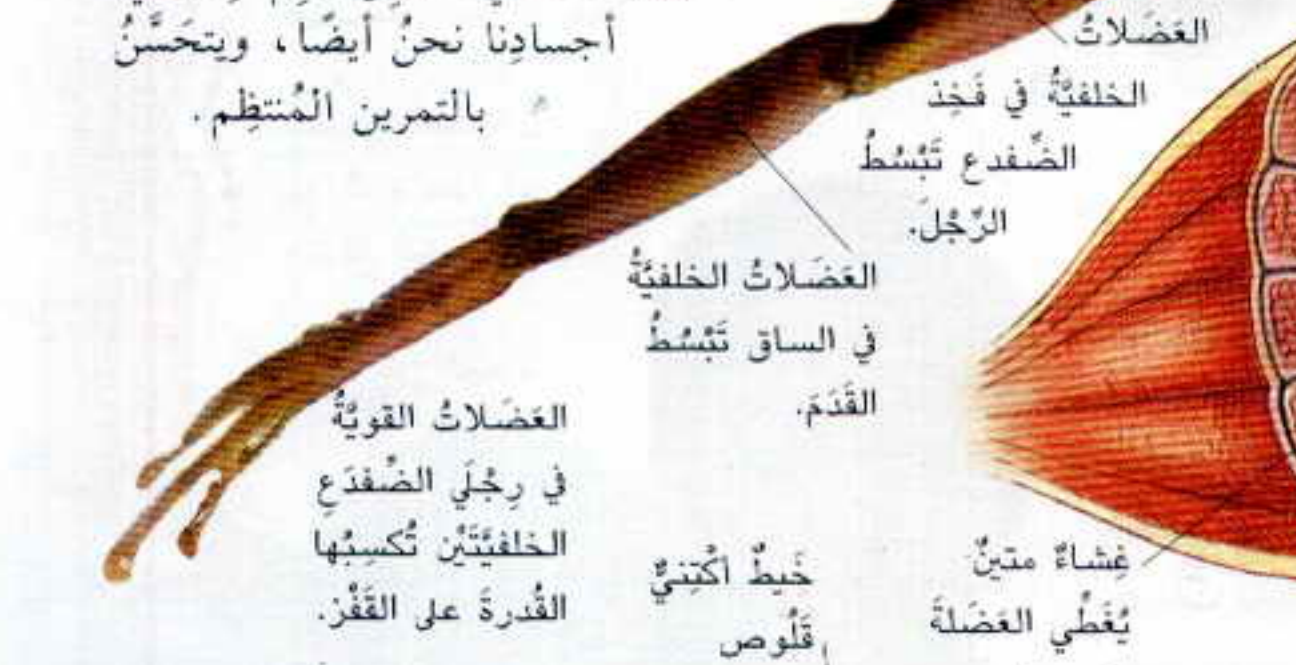 أجسادِنا نحنُ أيضًا، ويتحَسَّنُ
بالتمرين الْمُنتظِم.
العَضَلاتُ
الخلفيَّةُ في فَخِذ
الضِّفدع تَبْسُطُ
الرِّجْلَ.
العَضَلاتُ الخلفيَّةُ
في الساق تَبْسُطُ
القَدَمَ.
العَضَلاتُ القويَّةُ
في رِجْلَي الضِّفدَعِ
الخلفيَّتَيْن تُكسِبُها
القُدرةَ على القَفْز.
خَيطٌ اكْتِنيٌّ
قَلُوص
غِشاءٌ متينٌ
يُغَطِّي العَضَلةَ